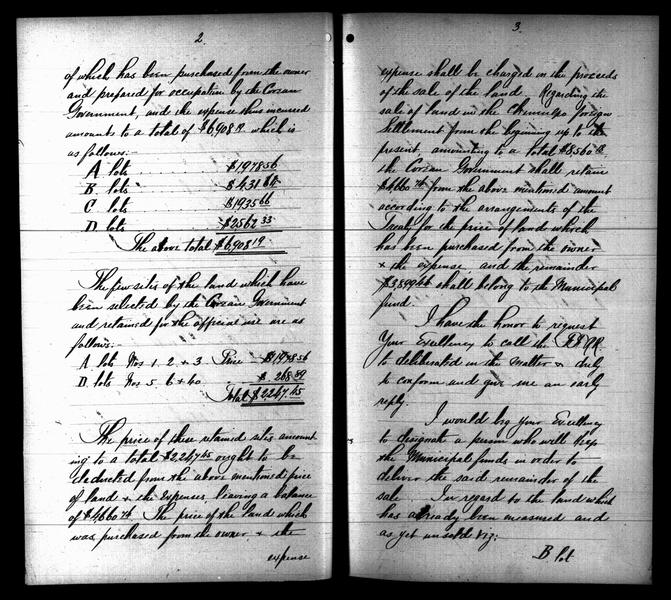 2.
of which has been purchased from the owner
and prepared for occupation by the Corean
Government, and the expense thus incurred
amounts to a total of $6,908.19 which is
as follows:-
A lots . . . . $1978.56
B lots . . . . $431.64
C lots . . . . $1935.66
D lots . . . . $2562.33
The above total $6,908.19
The few sites of the land which have
been selected by the Corean Government
and retained for the official use are as
follows:
A lots Nos 1. 2 + 3 Price $1978.56
D. lots Nos 5. 6 + 40 $. 268.89
Total $2,247.45
The price of these retained sites amount-
ing to a total $2,247.45 ought to be
deducted from the above mentioned price
of land + the expenses, leaving a balance
of $4,660.74. The price of the land which
was purchased from the owner + the
expense
3.
expense shall be charged in the proceeds
of the sale of the land. Regarding the
sale of land in the Chemulpo foreign
Settlement from the beginning up to the
present amounting to a total $8,560.
the Corean Government shall retain
$4660.74 from the above mentioned amount
according to the arrangements of the
Treaty for the price of land which
has been purchased from the owner
+ the expense, and the remainder
$3,899.66 shall belong to the Municipal
fund.
I have the honor to request
Your Excellency to call the
to deliberated in the matter + duly
to conform and give me an early
reply.
I would beg your Excellency
to designate a person who will keep
the Municipal funds in order to
deliver the said remainder of the
sale. In regard to the land which
has already been measured and
as yet unsold viz:
B lot